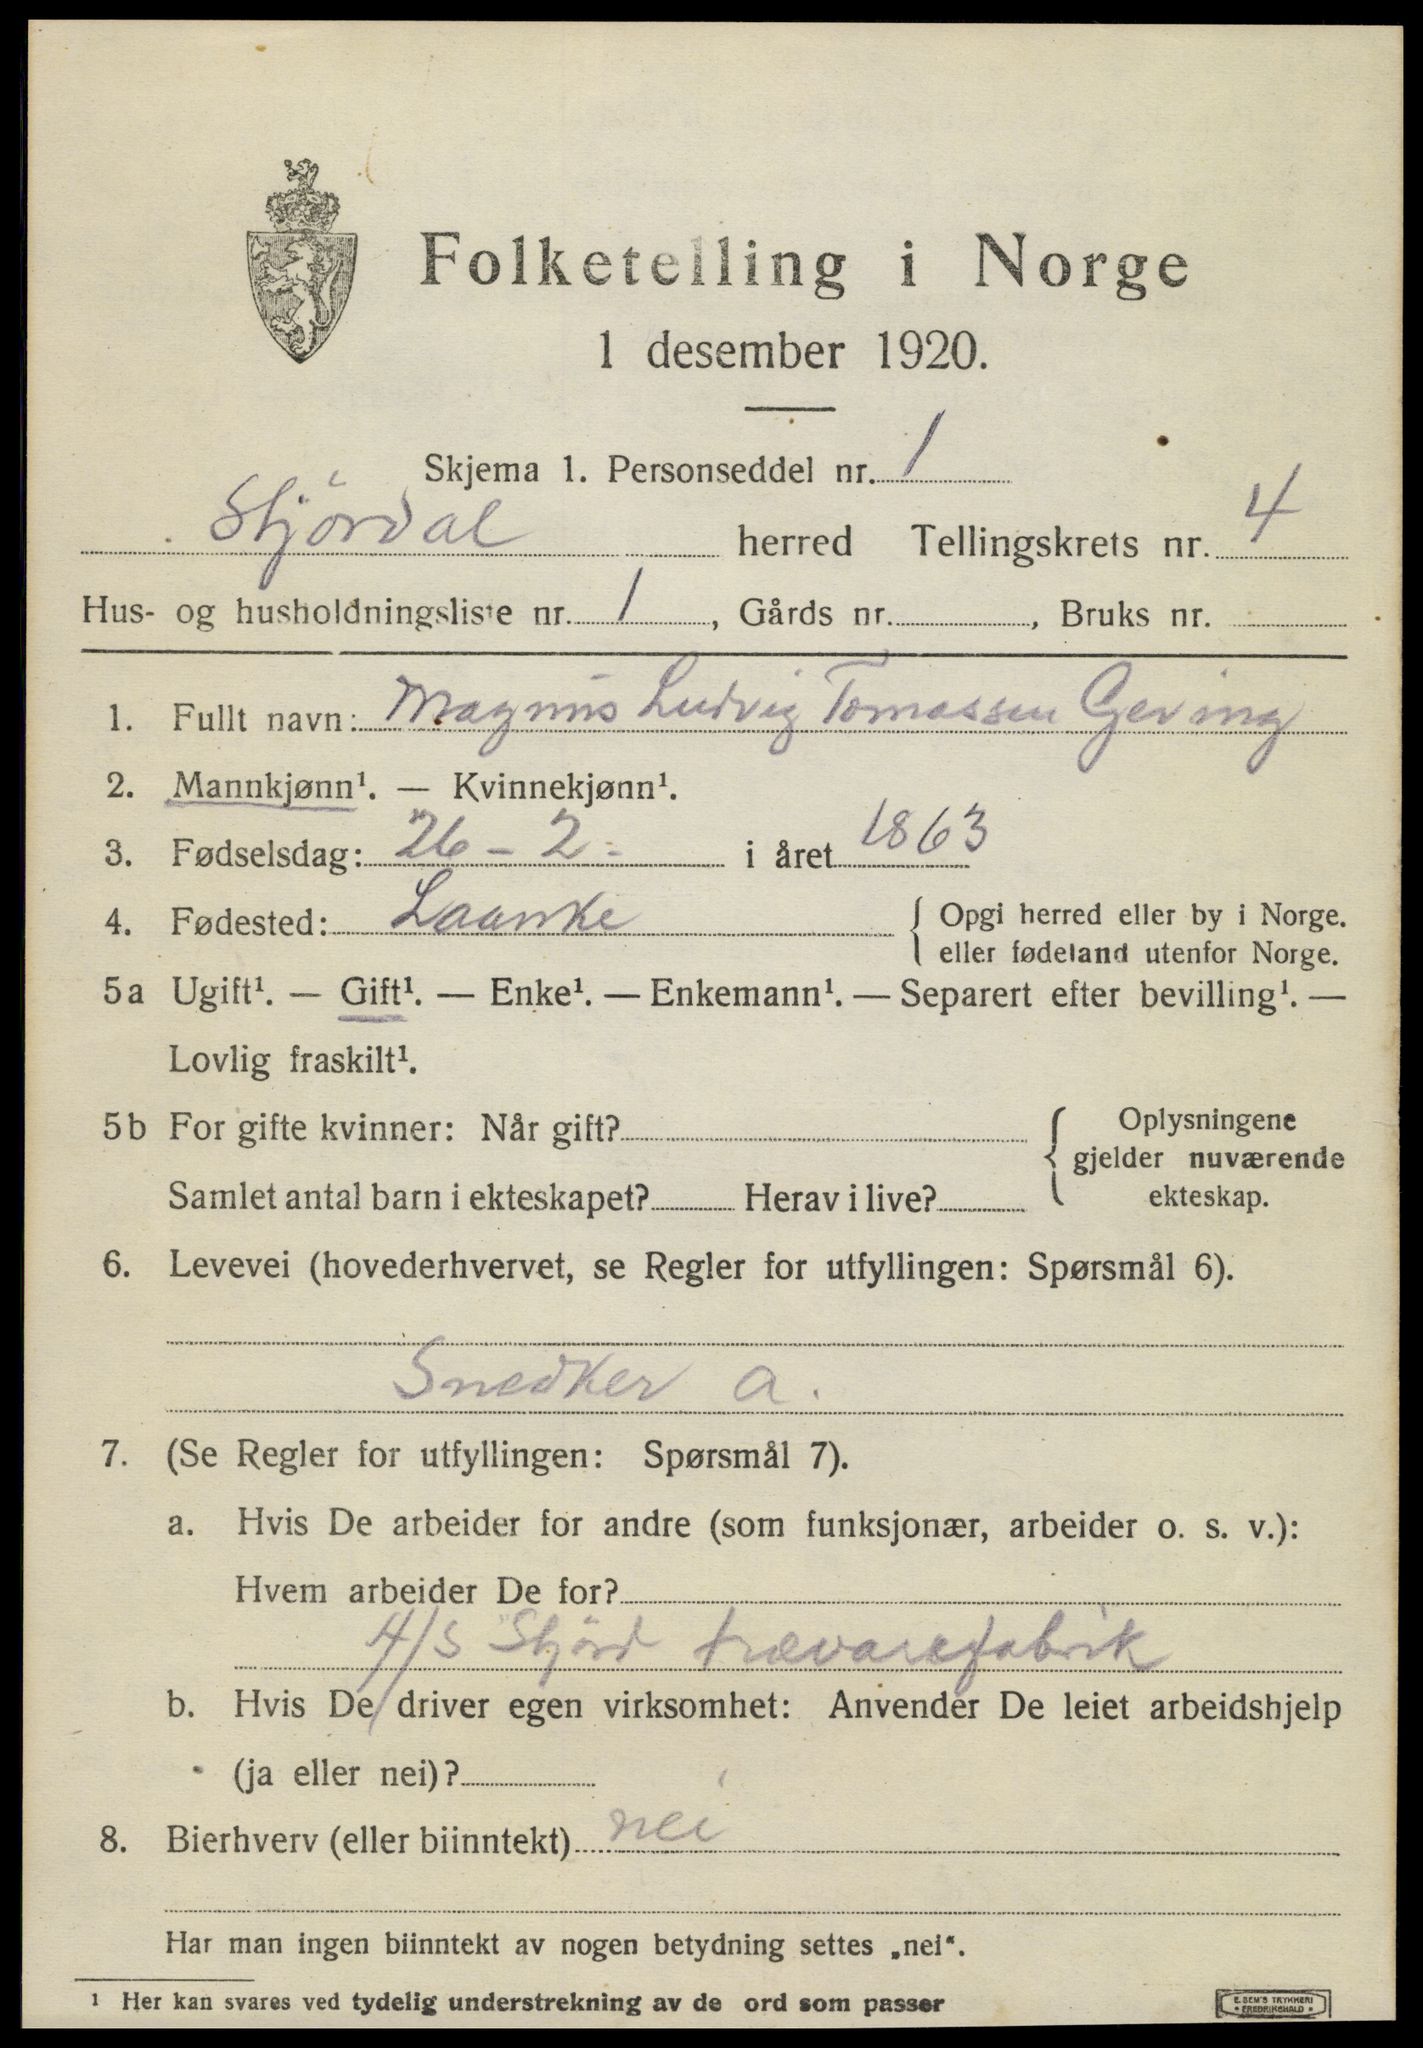 Folketelling i Norge
1 desember 1920.
Skjema 1. Personseddel nr. 1
Stjørdal herred Tellingskrets nr. 4
Hus- og husholdningsliste nr. 1, Gårds nr. , Bruks nr.
1. Fullt navn: Magnus Ludvig Tomassen Geving
2. Mannkjønn¹. — Kvinnekjønn¹.
3. Fødselsdag: 26 - 2 - i året 1863
4. Fødested: Laanke { Opgi herred eller by i Norge.
eller fødeland utenfor Norge.
5a Ugift¹. — Gift¹. — Enke¹. — Enkemann¹. — Separert efter bevilling¹. —
Lovlig fraskilt¹.
5b For gifte kvinner: Når gift? { Oplysningene
gjelder nuværende
Samlet antal barn i ekteskapet? Herav i live? ekteskap.
6. Levevei (hovederhvervet, se Regler for utfyllingen: Spørsmål 6).
Snedker a.
7. (Se Regler for utfyllingen: Spørsmål 7).
a. Hvis De arbeider for andre (som funksjonær, arbeider o. s. v.):
Hvem arbeider De for?
A/S Stjørd trævarefabrik
b. Hvis De driver egen virksomhet: Anvender De leiet arbeidshjelp
(ja eller nei)?
8. Bierhverv (eller biinntekt) nei
Har man ingen biinntekt av nogen betydning settes „nei“.
¹ Her kan svares ved tydelig understrekning av de ord som passer
E. SEM'S TRYKKERI
• FREDRIKSHALD •